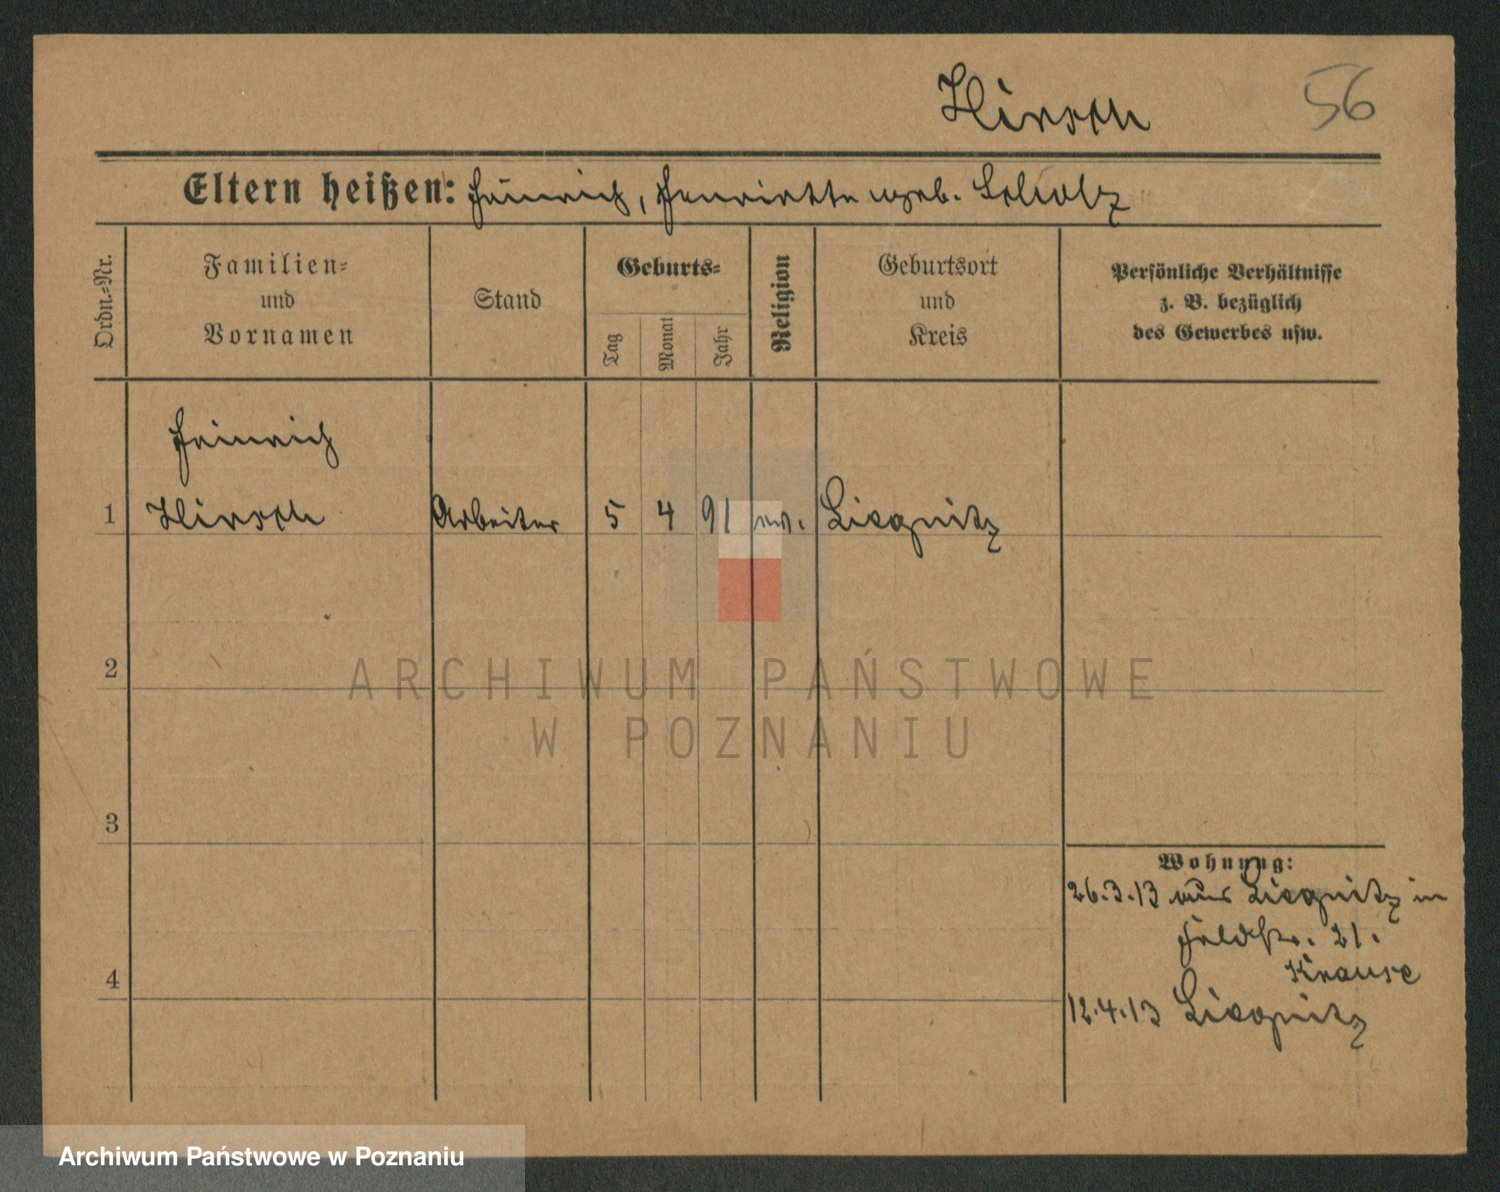 Hirsch 56
Eltern heißen: Heinrich, Henriette geb. Scholz
Ordn.=Nr.
Familien=
und
Vornamen
Stand
Geburts=
Tag
Monat
Jahr
Religion
Geburtsort
und
Kreis
Persönliche Verhältnisse
z. B. bezüglich
des Gewerbes usw.
Heinrich
1 Hirsch Arbeiter 5 4 91 ev. Liegnitz
2
ARCHIWUM PAŃSTWOWE
W POZNANIU
3
Wohnung:
26.3.13 aus Liegnitz in
Feldstr. 21.
Krause
4
12.4.13 Liegnitz
Archiwum Państwowe w Poznaniu